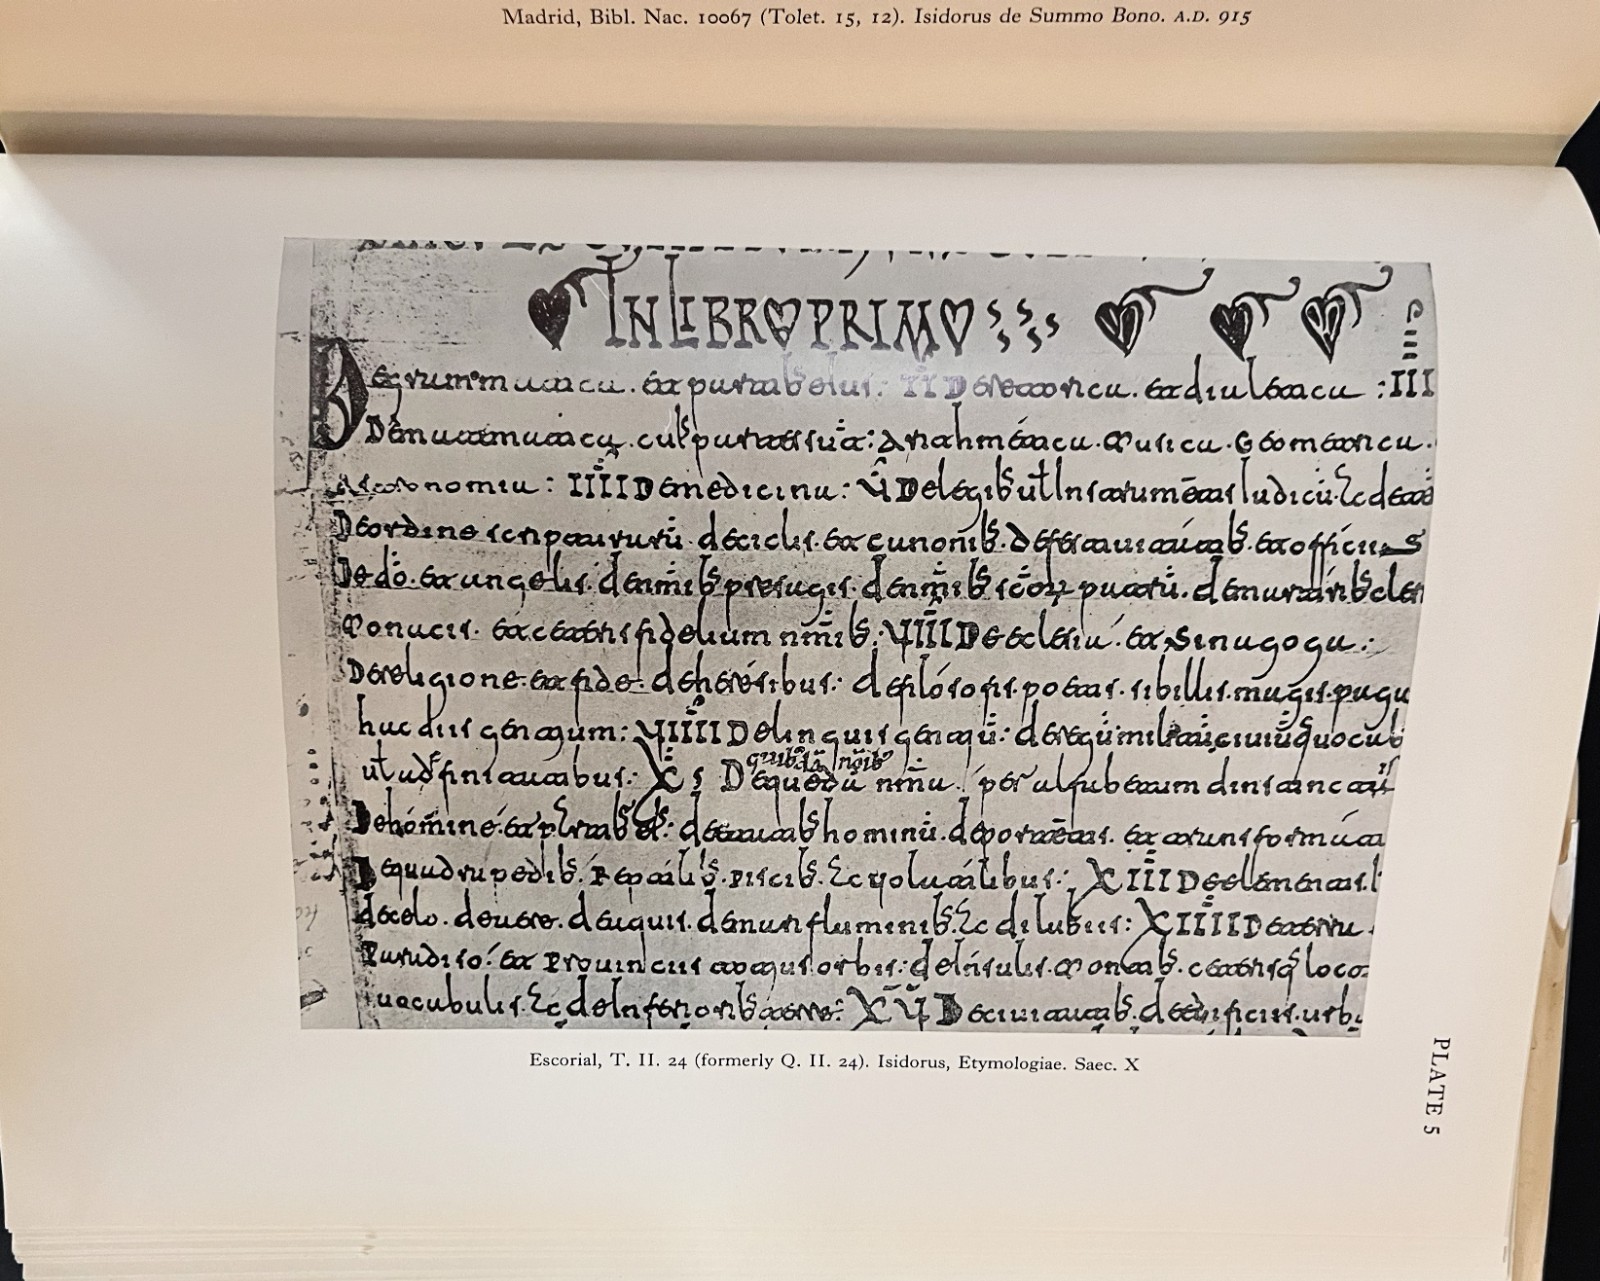 Madrid, Bibl. Nac. 10067 (Tolet. 15, 12). Isidorus de Summo Bono. A.D. 915
IN LIBRO PRIMO
De grammatica. et partibus eius: II De retorica. et dialectica : III
De matematica. cuius partes sunt: Arithmetica. Musica. Geometrica.
Astronomia: IIII De medicina: V De legib us vel Instrumentis Iudicum. Et de
De ordine scripturarum. de ciclis. et canonibs. De festivitatibs. et officiis
De do. et angelis. de nminibs presagis. de nminibs scorum patrum. de martiribs cler
Monacis. et ceteris fidelium nminibs: VIII De eclesia. et Sinagoga:
De religione et fide. de heresibus: de filosofis. poetis. sibillis. magis. pagu
hac diis gentium: VIIII De linguis gentium: de regum militarum civiumq vocab
vel adfinitatibus: X
quibdam noib
De quedam nmina per alfabetum distincta
De homine et partibs eius: de etatibs hominum. de portentis. et transformatis
De quadrupedibs. Reptilibs. Piscibs. Et volatilibus: XIII De elementis.
de celo. de aere. de aquis. de mari fluminibs. Et diluviis: XIIII De terra.
Paradiso. et Provinciis totius orbis: de Insulis. Montibs. ceterisq loco
vacabulis. Et de Inferioribs terre: XV De civitatibs. de edificiis. urb
Escorial, T. II. 24 (formerly Q. II. 24). Isidorus, Etymologiae. Saec. X
PLATE 5